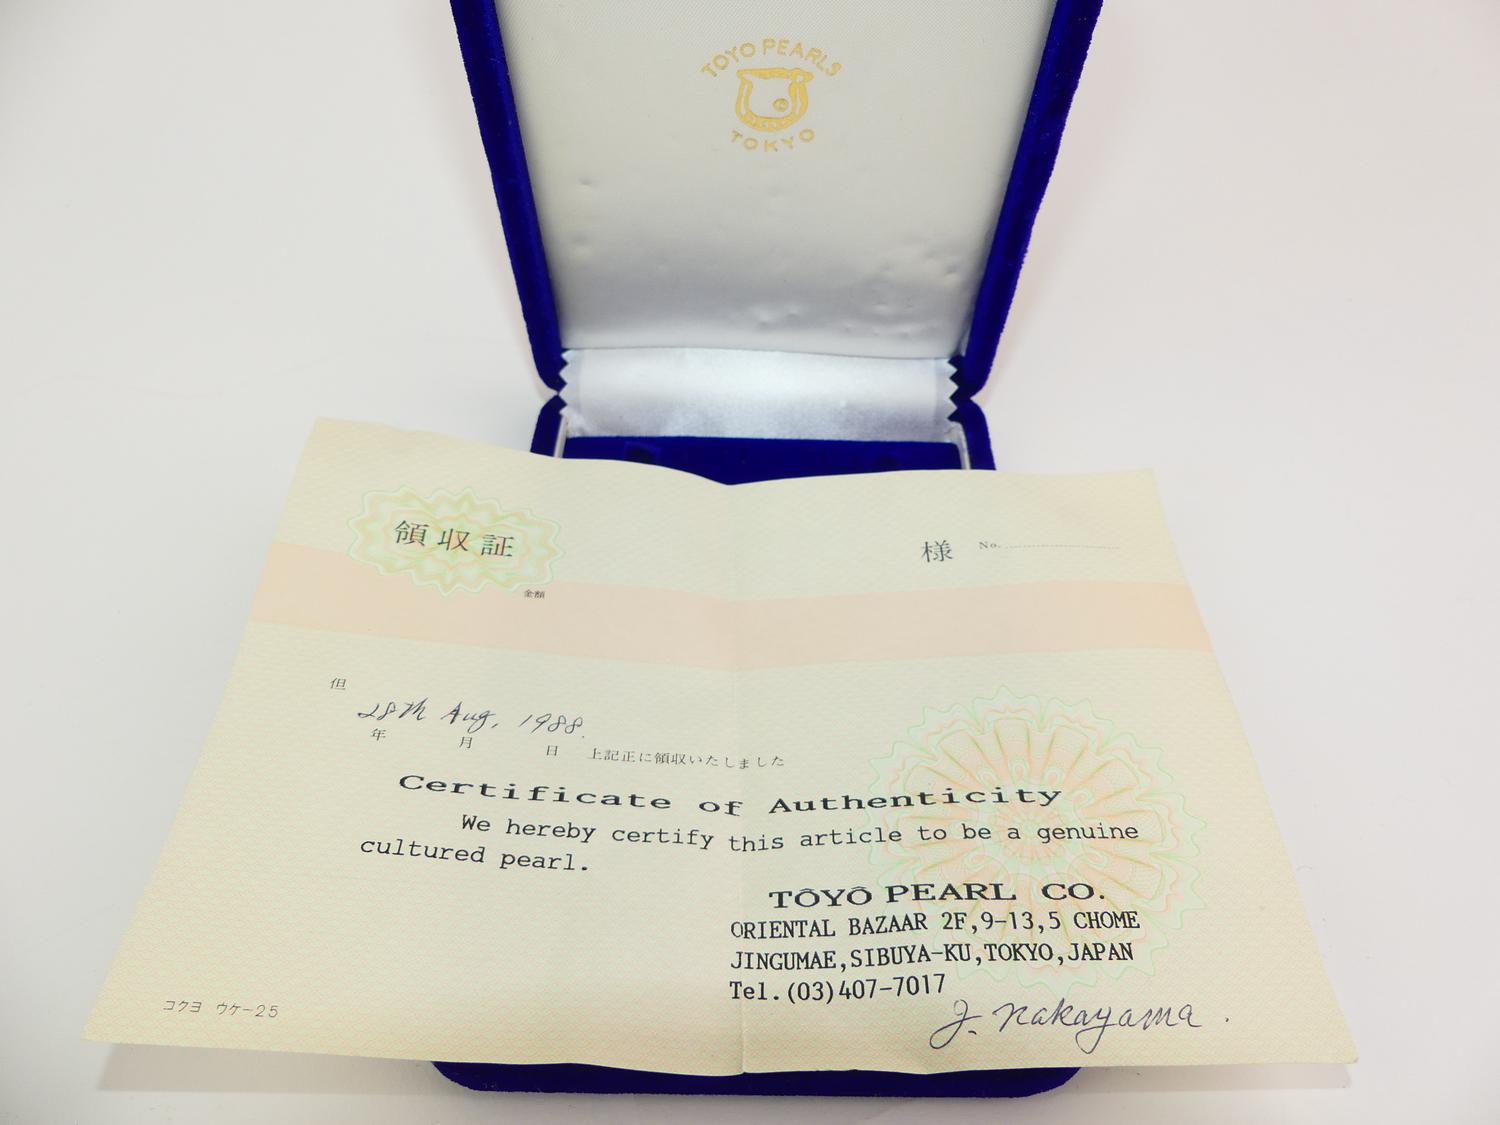 TOYO PEARLS
TOKYO
領収証
様 No.
金額
但
28th Aug, 1988.
年 月 日 上記正に領収いたしました
Certificate of Authenticity
We hereby certify this article to be a genuine
cultured pearl.
TÔYÔ PEARL CO.
ORIENTAL BAZAAR 2F,9-13,5 CHOME
JINGUMAE,SIBUYA-KU,TOKYO,JAPAN
Tel.(03)407-7017
J. Nakayama.
コクヨ ウケ-25